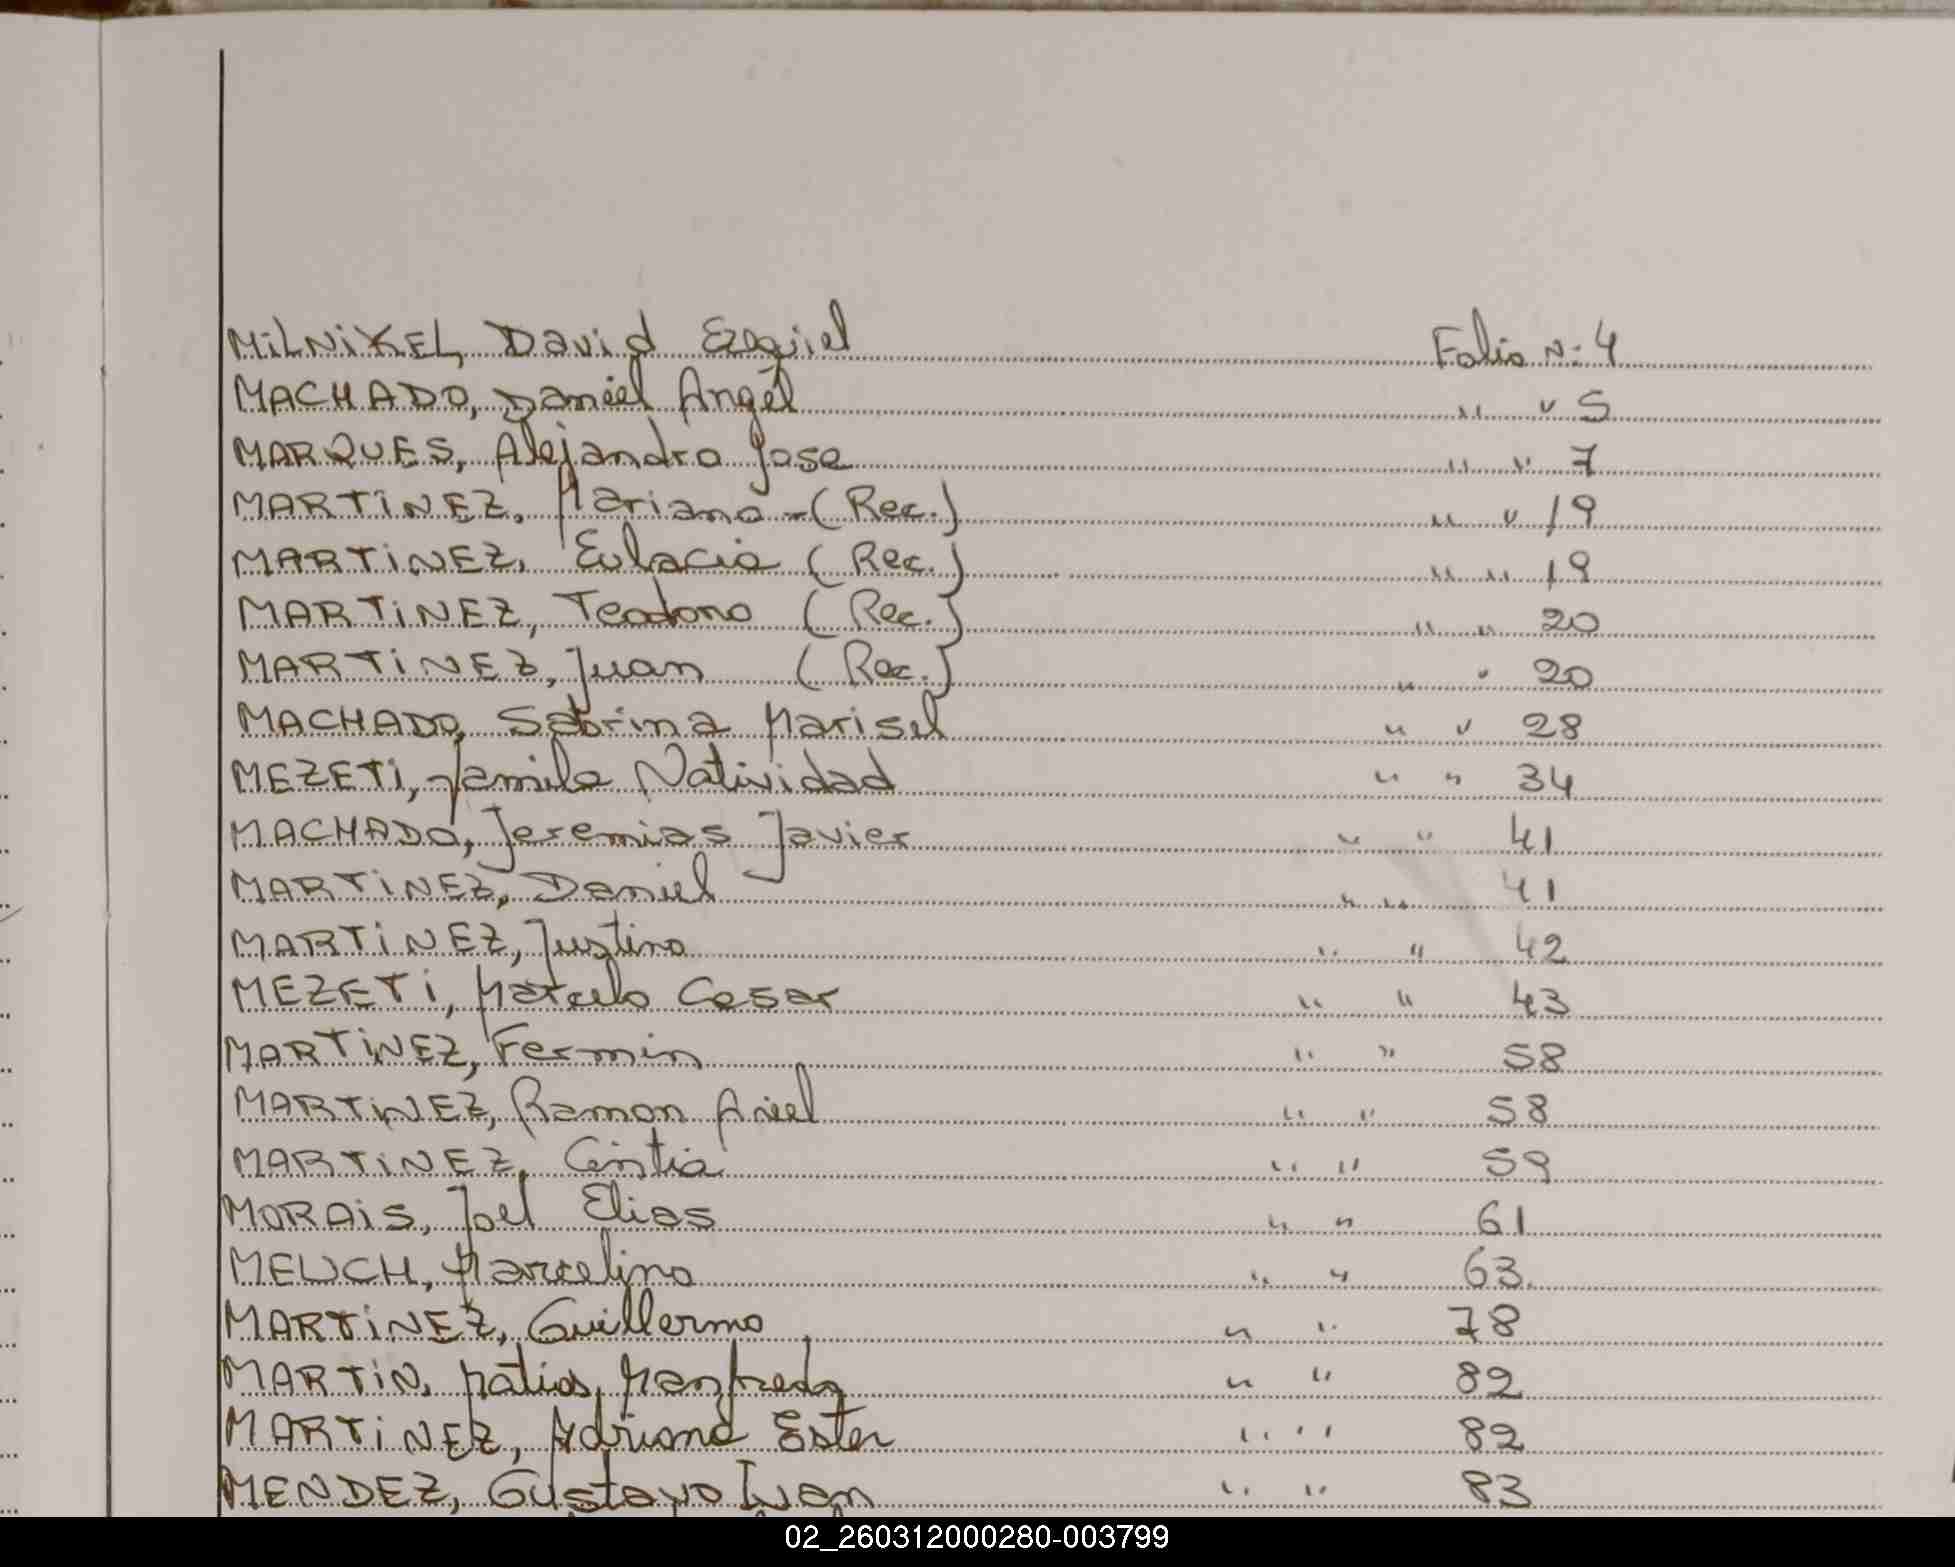 MiLNiKEL, David Ezequiel Folio N: 4
MACHADO, Daniel Angel " " 5
MARQUES, Alejandro Jose " " 7
MARTiNEZ, Mariano - (Rec.) " " 19
MARTiNEZ, Eulacia (Rec.) " " 19
MARTiNEZ, Teodoro (Rec.) " " 20
MARTiNEZ, Juan (Rec.) " " 20
MACHADO, Sabrina Marisel " " 28
MEZETi, Yamila Natividad " " 34
MACHADO, Jeremias Javier " " 41
MARTiNEZ, Daniel " " 41
MARTiNEZ, Justino " " 42
MEZETi, Marcelo Cesar " " 43
MARTiNEZ, Fermin " " 58
MARTiNEZ, Ramon Ariel " " 58
MARTiNEZ, Cintia " " 59
MORAiS, Joel Elias " " 61
Marcelino " " 63.
MARTiNEZ, Guillermo " " 78
MARTiN, Matias Manfredo " " 82
MARTiNEZ, Adriana Ester " " 82
MENDEZ, Gustavo Ivan " " 83
02_260312000280-003799